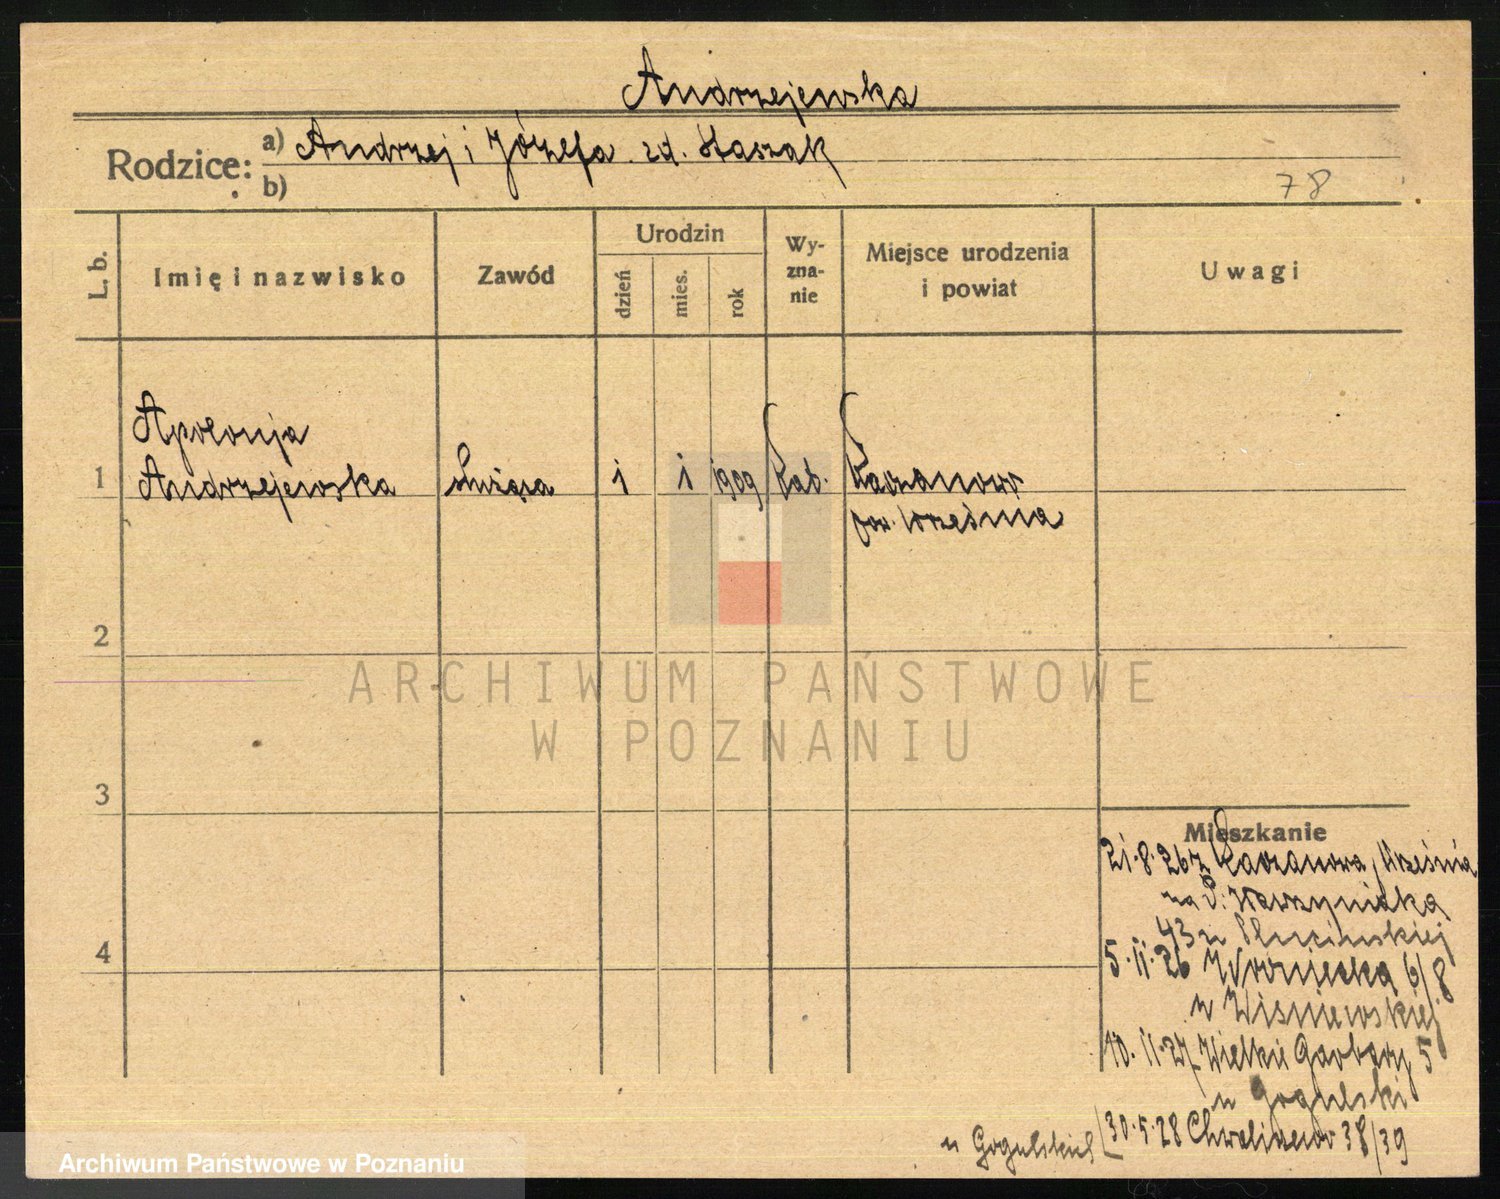 Andrzejewska
Rodzice: a) Andrzej i Józefa zd. Staszak
b)
78
L. b.
Imię i nazwisko
Zawód
Urodzin
dzień
mies.
rok
Wy-
zna-
nie
Miejsce urodzenia
i powiat
Uwagi
Apolonja
1 Andrzejewska służąca 1 1 1909 kat. Kaczanowo
pow. Września
2
ARCHIWUM PAŃSTWOWE
W POZNANIU
3
Mieszkanie
21.8.26 z Kaczanowa, Września
na P. Wawrzyniaka
43 u
5.11.26 Wroniecka 6/8
u Wiśniewskiej
4
10.11.27 Wielkie Garbary 5
u Gogulski
30.5.28 Chwaliszewo 38/39
u Gogulskich
Archiwum Państwowe w Poznaniu